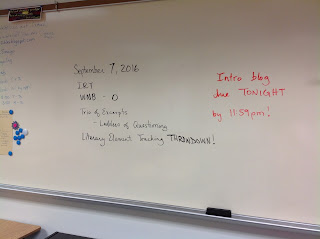 September 7, 2016
IRT
WNB - O
Trio of Excerpts
- Ladders of Questioning
Literary Element Tracking THROWDOWN!
Intro blog
due TONIGHT
by 11:59pm!